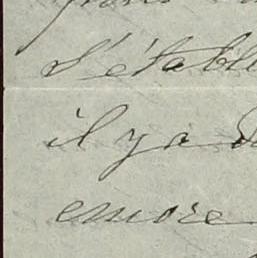 s'établi
il y a d
encore